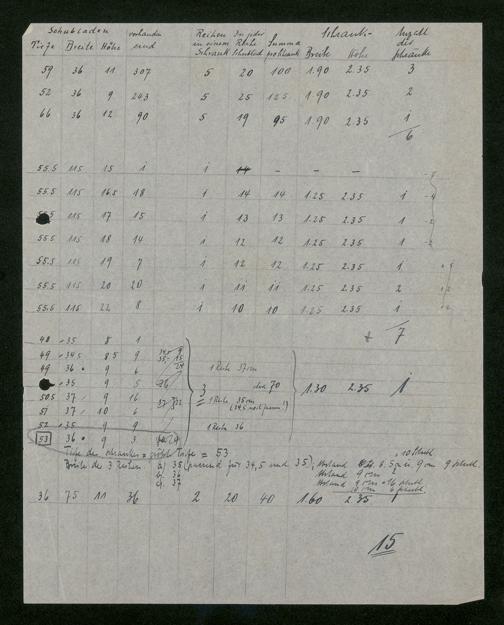 Schubladen vorhanden Reihen In jeder Summa Schrank- Anzahl
Tiefe Breite Höhe sind in einem Schrank Reihe Schubld. pro Schrank Breite Höhe der Schränke
59 36 11 307 5 20 100 1.90 2.35 3
52 36 9 243 5 25 125 1.90 2.35 2
66 36 12 90 5 19 95 1.90 2.35 1
6
55.5 115 15 1 1 14 - - -
55.5 115 16.5 18 1 14 14 1.25 2.35 1
55.5 115 17 15 1 13 13 1.25 2.35 1
55.5 115 18 14 1 12 12 1.25 2.35 1
55.5 115 19 7 1 12 12 1.25 2.35 1
55.5 115 20 20 1 11 11 1.25 2.35 2
55.5 115 22 8 1 10 10 1.25 2.35 1
7
48 35 8 1
49 34.5 8.5 9
49 36 9 6 1 Reihe 37cm
35 9 5 3 70 1.30 2.35 1
50.5 37 9 16 1 Reihe 35cm
51 37 10 6 (34,5 noch passen!)
52 35 9 9 1 Reihe 36
53 36 9 3
Tiefe des Schrankes = größte Tiefe = 53
Breite der 3 Reihen a) 35 (passend für 34,5 und 35)
b) 36
c) 37
36 75 11 36 2 20 40 1.60 2.35 1
15